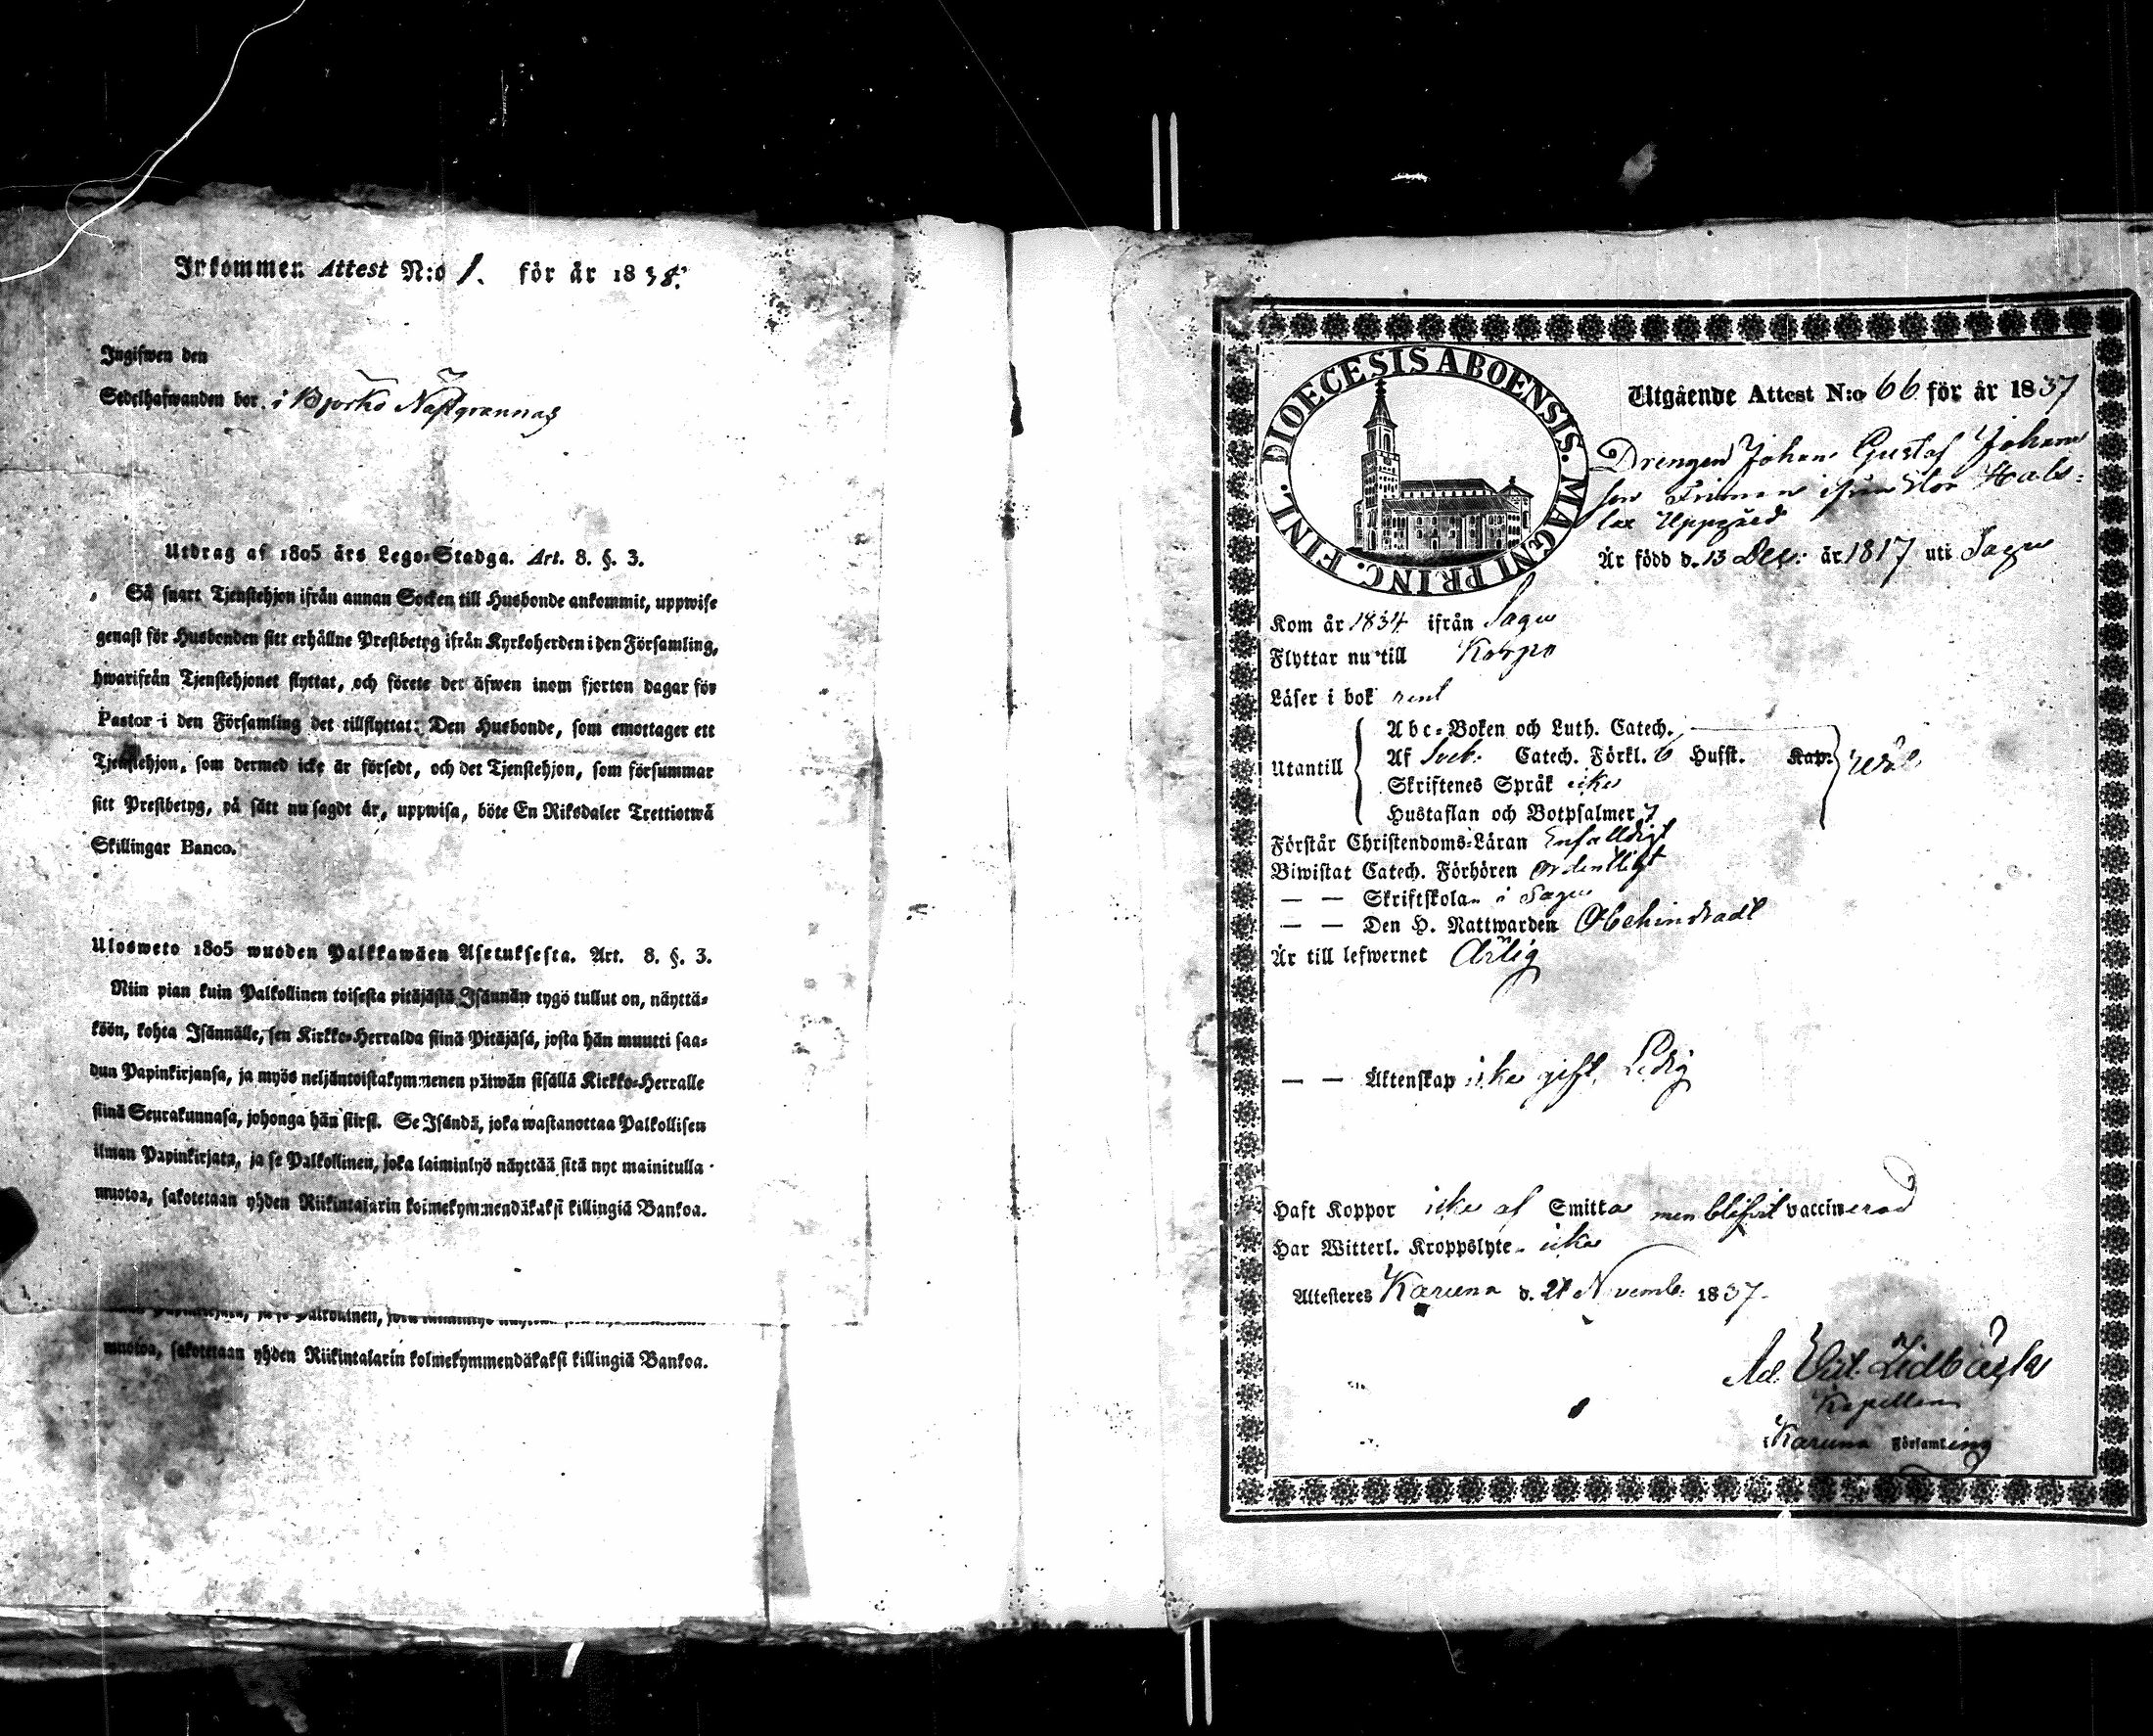 Inkommen Attest N:o 1. för år 1838.
Ingifwen den
Sedelhafwanden bor i Björkö Näsgrannas
Utdrag af 1805 års Lego-Stadga. Art. 8. §. 3.
Så snart Tjenstehjon ifrån annan Socken till Husbonde ankommit, uppwise
genast för Husbonden sitt erhållne Prestbetyg ifrån Kyrkoherden i den Församling,
hwarifrån Tjenstehjonet flyttat, och förete det äfwen inom fjorton dagar för
Pastor i den Församling det tillflyttat: Den Husbonde, som emottager ett
Tjenstehjon, som dermed icke är försedt, och det Tjenstehjon, som försummar
sitt Prestbetyg, på sätt nu sagdt är, uppwisa, böte En Riksdaler Trettiotwå
Skillingar Banco.
Ulosweto 1805 wuoden Palkkawäen Asetuksesta. Art. 8. §. 3.
Niin pian kuin Palkollinen toisesta pitäjästä Isännän tygö tullut on, näyttä-
köön, kohta Isännälle, sen Kirkko-Herralda siinä Pitäjäsä, josta hän muutti saa-
dun Papinkirjansa, ja myös neljäntoistakymmenen päiwän sisällä Kirkko-Herralle
siinä Seurakunnasa, johonga hän siirst. Se Isändä, joka wastanottaa Palkollisen
ilman Papinkirjata, ja se Palkollinen, joka laiminlyö näyttää sitä nyt mainitulla
muotoa, sakotetaan yhden Riikintalarin kolmekymmendäkaksi killingiä Bankoa.
muotoa, sakotetaan yhden Riikintalarin kolmekymmendäkaksi killingiä Bankoa.
DIOECESIS ABOENSIS. MAGNI PRINC. FINL.
Utgående Attest N:o 66 för år 1837
Drengen Johan Gustaf Johans
son ifrån Stor Hals-
lax Uppgård
Är född d. 13 Dec: år 1817 uti Sagu
Kom år 1834 ifrån Sagu
Flyttar nu till Korpo
Läser i bok rent
Utantill
Abc-Boken och Luth. Catech.
Af Sveb. Catech. Förkl. 6 Hufst. Kap:
Skriftenes Språk icke
Hustaflan och Botpsalmer 7
Förstår Christendoms-Läran Enfaldigt
Biwistat Catech. Förhören ordentligt
— — Skriftskolan i Sagu
— — Den H. Nattwarden Obehindradt
Är till lefwernet Ärlig
— — Äktenskap icke gift. Ledig
Haft Koppor icke af Smitta men blifvit vaccinerad
Har Witterl. Kroppslyte icke
Attesteres Karuna d. 21 Novemb: 1837.
Ad.
Kapellan
i Karuna Församling